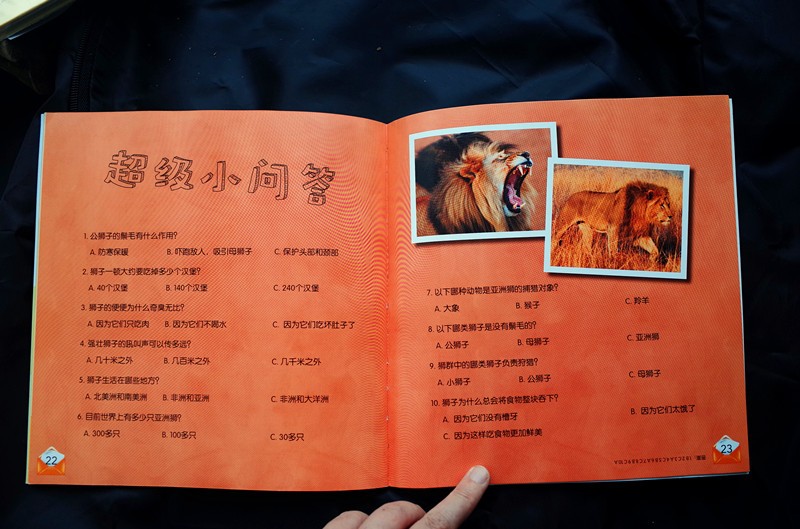 超级小问答
1. 公狮子的鬃毛有什么作用?
A. 防寒保暖 B. 吓跑敌人，吸引母狮子 C. 保护头部和颈部
2. 狮子一顿大约要吃掉多少个汉堡?
A. 40个汉堡 B. 140个汉堡 C. 240个汉堡
3. 狮子的便便为什么奇臭无比?
A. 因为它们只吃肉 B. 因为它们不喝水 C. 因为它们吃坏肚子了
4. 强壮狮子的吼叫声可以传多远?
A. 几十米之外 B. 几百米之外 C. 几千米之外
5. 狮子生活在哪些地方?
A. 北美洲和南美洲 B. 非洲和亚洲 C. 非洲和大洋洲
6. 目前世界上有多少只亚洲狮?
A. 300多只 B. 100多只 C. 30多只
22
7. 以下哪种动物是亚洲狮的捕猎对象?
A. 大象 B. 猴子 C. 羚羊
8. 以下哪类狮子是没有鬃毛的?
A. 公狮子 B. 母狮子 C. 亚洲狮
9. 狮群中的哪类狮子负责狩猎?
A. 小狮子 B. 公狮子 C. 母狮子
10. 狮子为什么总会将食物整块吞下?
A. 因为它们没有槽牙 B. 因为它们太饿了
C. 因为这样吃食物更加鲜美
23